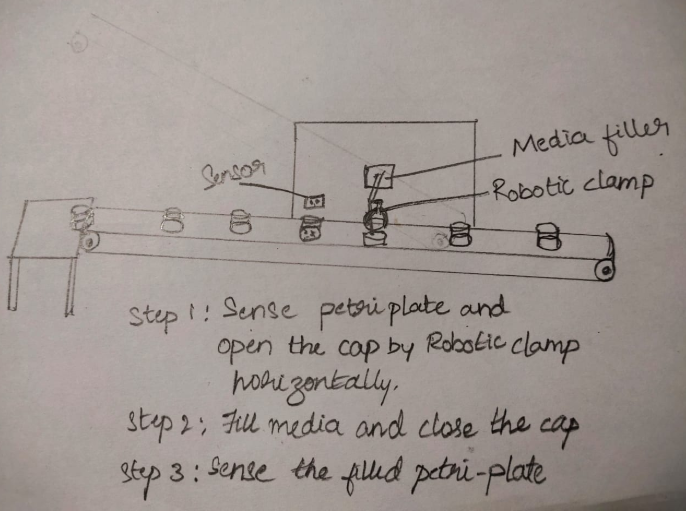 Media filler
Sensor
Robotic clamp
Step 1: Sense petri plate and
open the cap by Robotic clamp
horizontally.
Step 2: Fill media and close the cap
Step 3: Sense the filled petri-plate